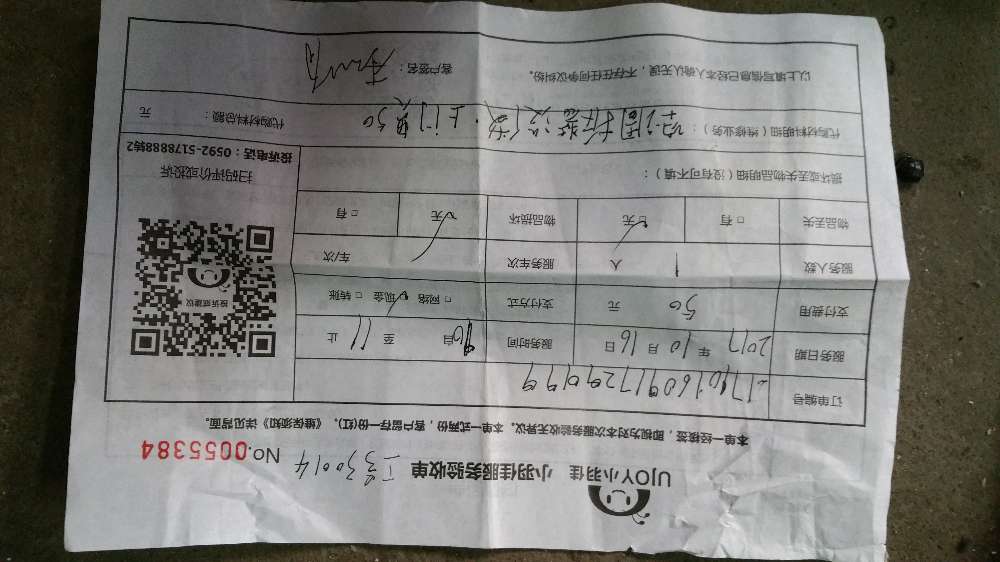 UJOY小羽佳 小羽佳服务验收单 No.0055384
本单一经核签，即视为对本次服务验收无异议。本单一式两份，客户留存一份(红)，《维保须知》详见背面。
订单编号
服务日期 2017年10月16日 服务时间 10自 至 11止
支付费用 50元 支付方式 □网络 ☑现金 □转账
服务人数 1人 服务车次 车/次
物品丢失 □有 ☑无 物品损坏 ☑无 □有
损坏或丢失物品明细（没有可不填）：
投诉或建议
扫码评价或投诉
投诉电话：0592-5178888转2
代购材料明细（维修业务）： 空调 上门费50 代购材料总额： 元
以上填写信息已经本人确认无误，不存在任何争议纠纷。 客户签名：